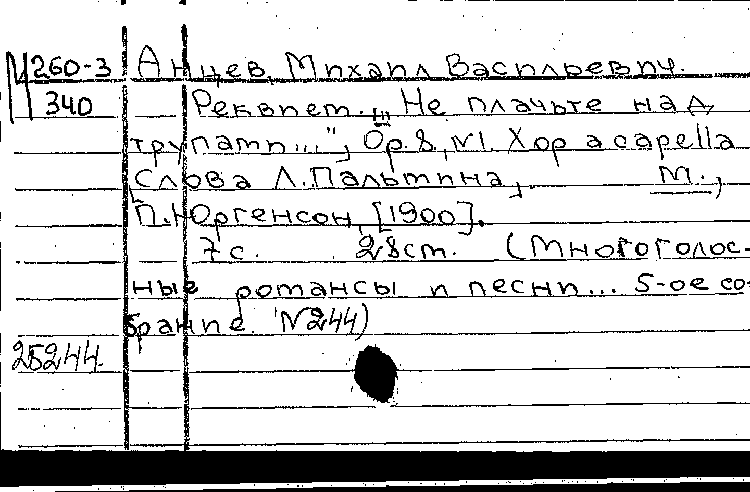 М 260-3 Анцев, Михаил Васильевич.
340 Реквием. „Не плачьте над
трупами...", Op. 8, N1. Хор a capella
Слова Л. Пальмина, М.,
П. Юргенсон, [1900].
7 с. 28 ст. (Многоголос-
ные романсы и песни... 5-ое со-
брание. N244)
25244.